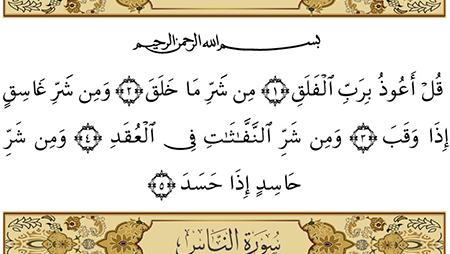 بسم الله الرحمن الرحيم
قُلْ أَعُوذُ بِرَبِّ ٱلْفَلَقِ ﴿١﴾ مِن شَرِّ مَا خَلَقَ ﴿٢﴾ وَمِن شَرِّ غَاسِقٍ
إِذَا وَقَبَ ﴿٣﴾ وَمِن شَرِّ ٱلنَّفَّٰثَٰتِ فِى ٱلْعُقَدِ ﴿٤﴾ وَمِن شَرِّ
حَاسِدٍ إِذَا حَسَدَ ﴿٥﴾
سُورَةُ النَّاسِ